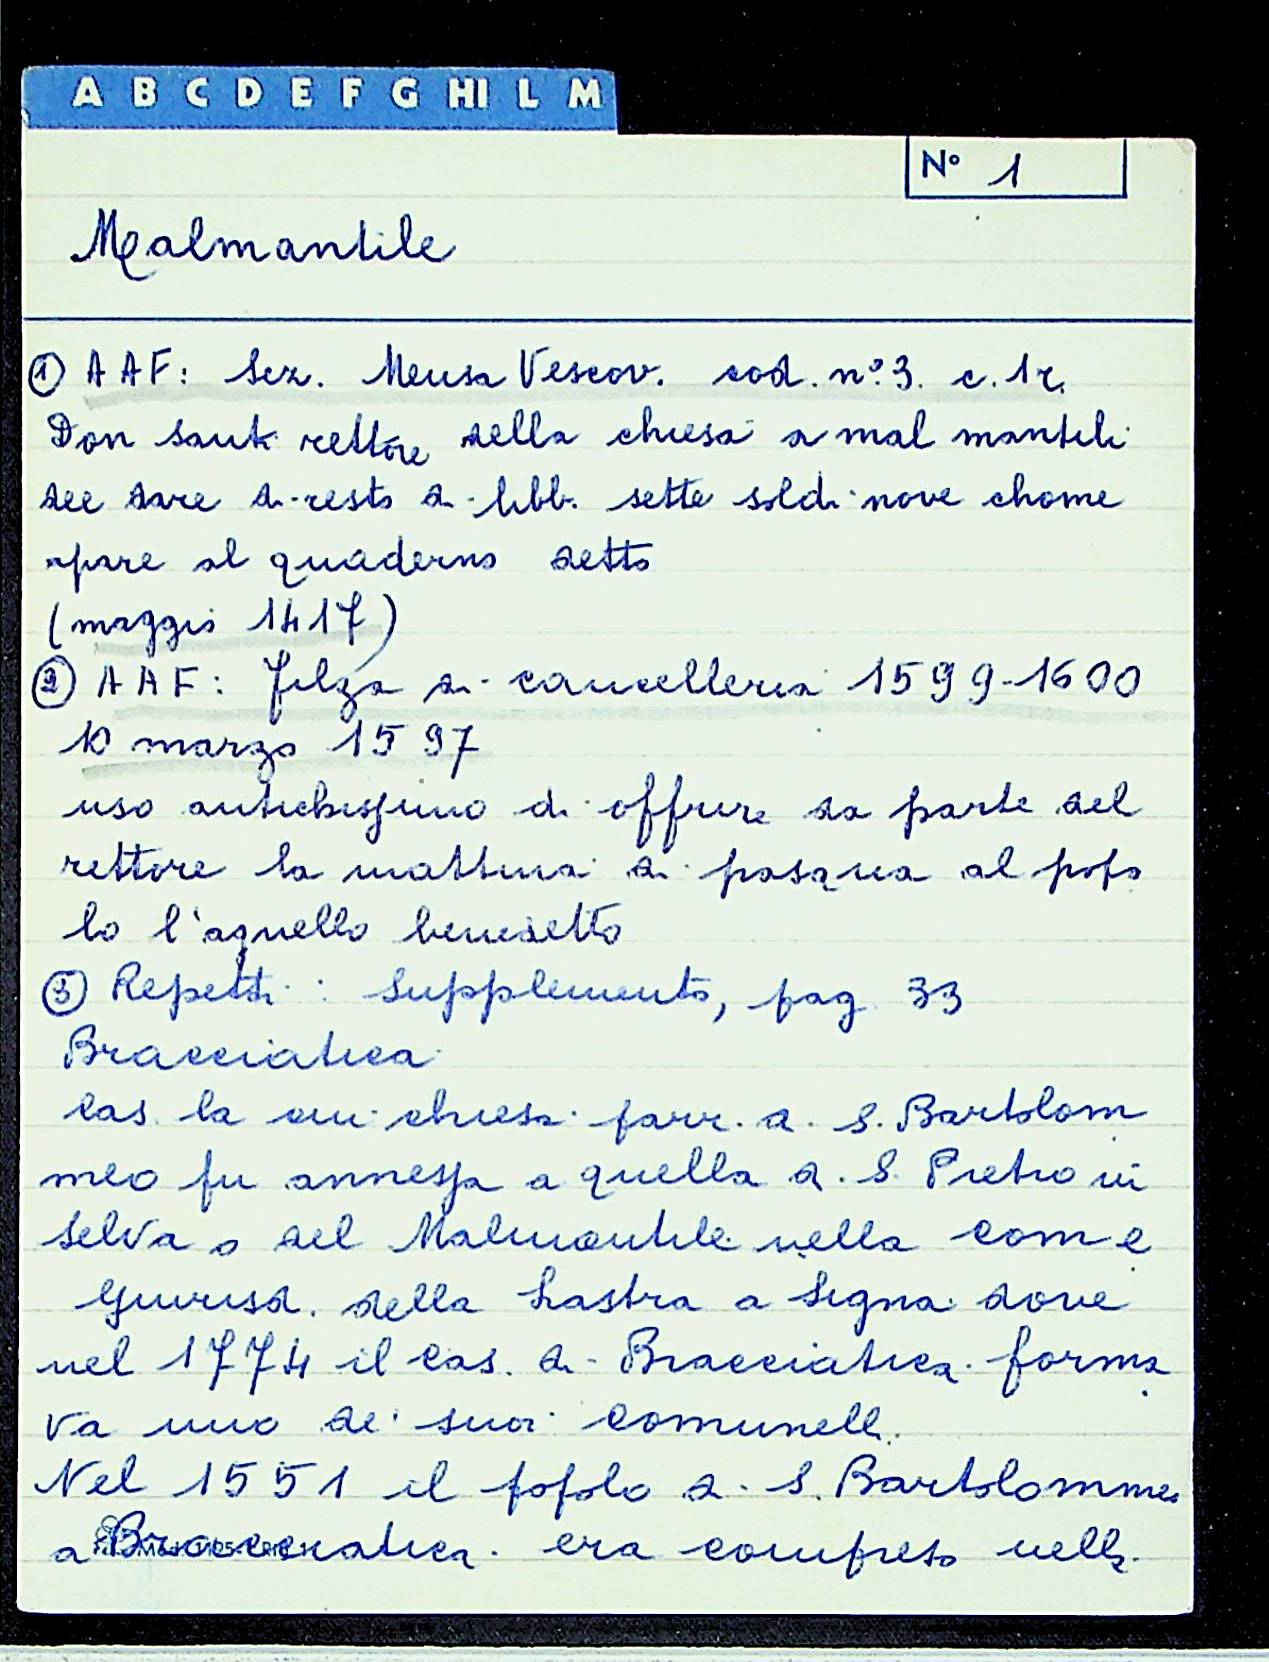 A B C D E F G HI L M
N° 1
Malmantile
① AAF: Sez. Mensa Vescov. cod. n°. 3. c. 1r.
Don Santi rettore della chiesa a mal mantili
dee dare di resto di libb. sette soldi nove chome
apare al quaderno detto
(maggio 1417)
② AAF: Filza di cancelleria 1599-1600
10 marzo 1597
uso antichissimo di offrire da parte del
rettore la mattina di pasqua al popo
lo l'agnello benedetto
③ Repetti: Supplemento, pag. 33
Bracciatica
Cas. la cui chiesa parr. di S. Bartolom
meo fu annessa a quella di S. Pietro in
Selva o del Malmantile nella com e
Giurisd. della Lastra a Signa dove
nel 1774 il Cas. di Bracciatica forma
va uno dei suoi comunelli.
Nel 1551 il popolo di S. Bartolommeo
a Bracciatica era compreso nella